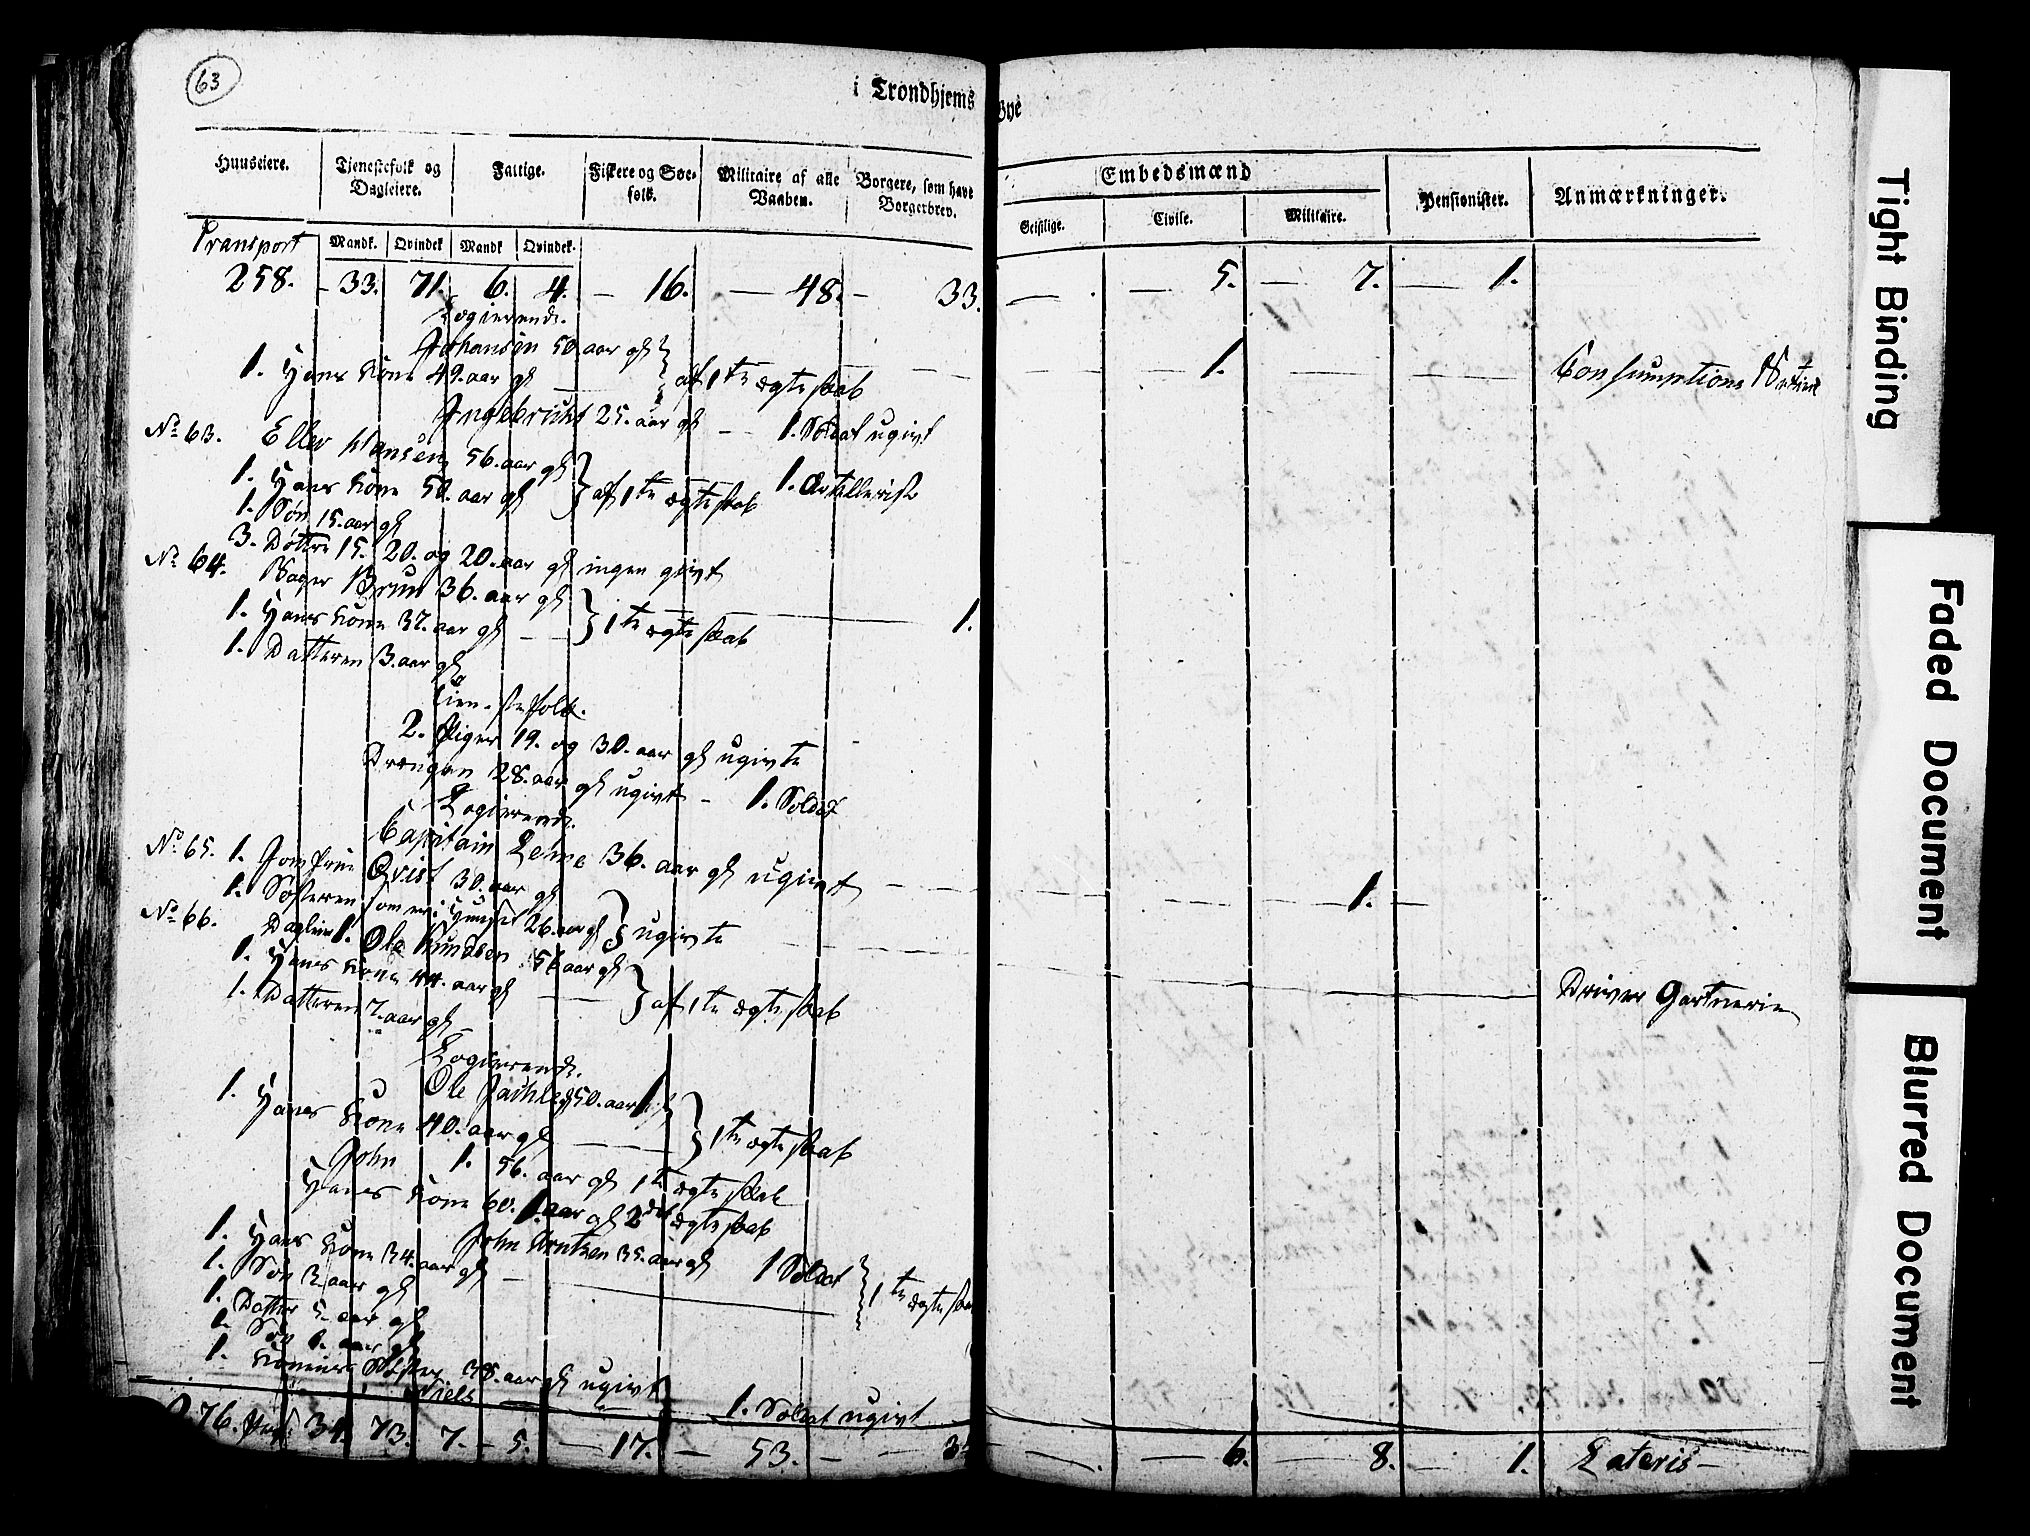 63
i Trondhjems Bye
Huuseiere.
Tjenestefolk og Dagleiere.
Fattige.
Fiskere og Søefolk.
Militaire af alle Vaaben.
Borgere, som have Borgerbrev.
Embedsmænd
Geistlige.
Civile.
Militaire.
Pensionister.
Anmærkninger.
Mandk. Qvindek Mandk Qvindek.
Transport
258. 33. 71. 6. 4. 16. 48. 33. 5. 7. 1.
Logierende.
Johansen 50 aar gl
1. Hans Kone 49. aar gl af 1te ægteskab 1. Consumptions
Ingebricht 25. aar gl 1. Soldat ugivt
No 63. Eller Hansen 56. aar gl
1. Hans Kone 50. aar gl af 1te ægteskab 1. Artillerist
1. Søn 15. aar gl
3. Døttre 15. 20. og 20. aar gl ingen givt
No 64. Bager Brun 36. aar gl
1. Hans Kone 37. aar gl 1te ægteskab 1.
1. Datteren 3. aar gl
Tienestefolk.
2. Piger 19. og 30. aar gl ugivte
Drengen 28. aar gl ugivt 1. Soldat
Logierende.
Capitain 36. aar gl ugivt 1.
No 65. 1. Jomfrue Qvist 30. aar gl
1. Søsteren som er i Huuset 26. aar gl ugivte
No 66. Dagleier 1. Ole Knudsen 56 aar gl
1. Hans Kone 44. aar gl af 1te ægteskab Driver Gartnerie
1. Datteren 7. aar gl
Logierende.
Ole 50. aar gl
1. Hans Kone 40. aar gl 1te ægteskab
John 1. 56. aar gl 1te ægteskab
Hans Kone 60. 1. aar gl 2det ægteskab
John Arntzen 35. aar gl 1 Soldat
1. Hans Kone 34. aar gl 1te ægteskab
1. Søn 3. aar gl
1. Datter 5. aar gl
1. Søn 6. aar gl
1. Konens Søster 38. aar gl ugivt
Niels 1. Soldat ugivt
276. 34. 73. 7. 5. 17. 53. 6. 8. 1. Lateris
Tight Binding
Faded Document
Blurred Document